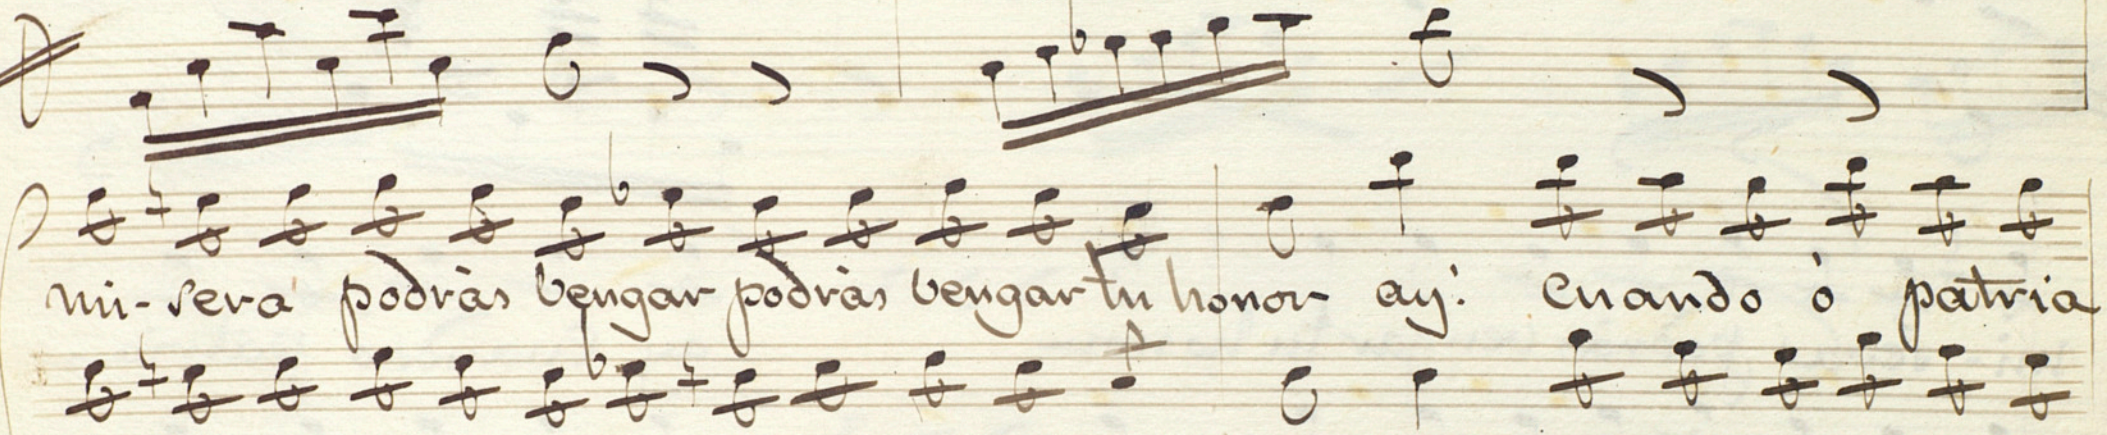 mi-sera podràs bengar podràs bengar tu honor ay! cuando ò patria